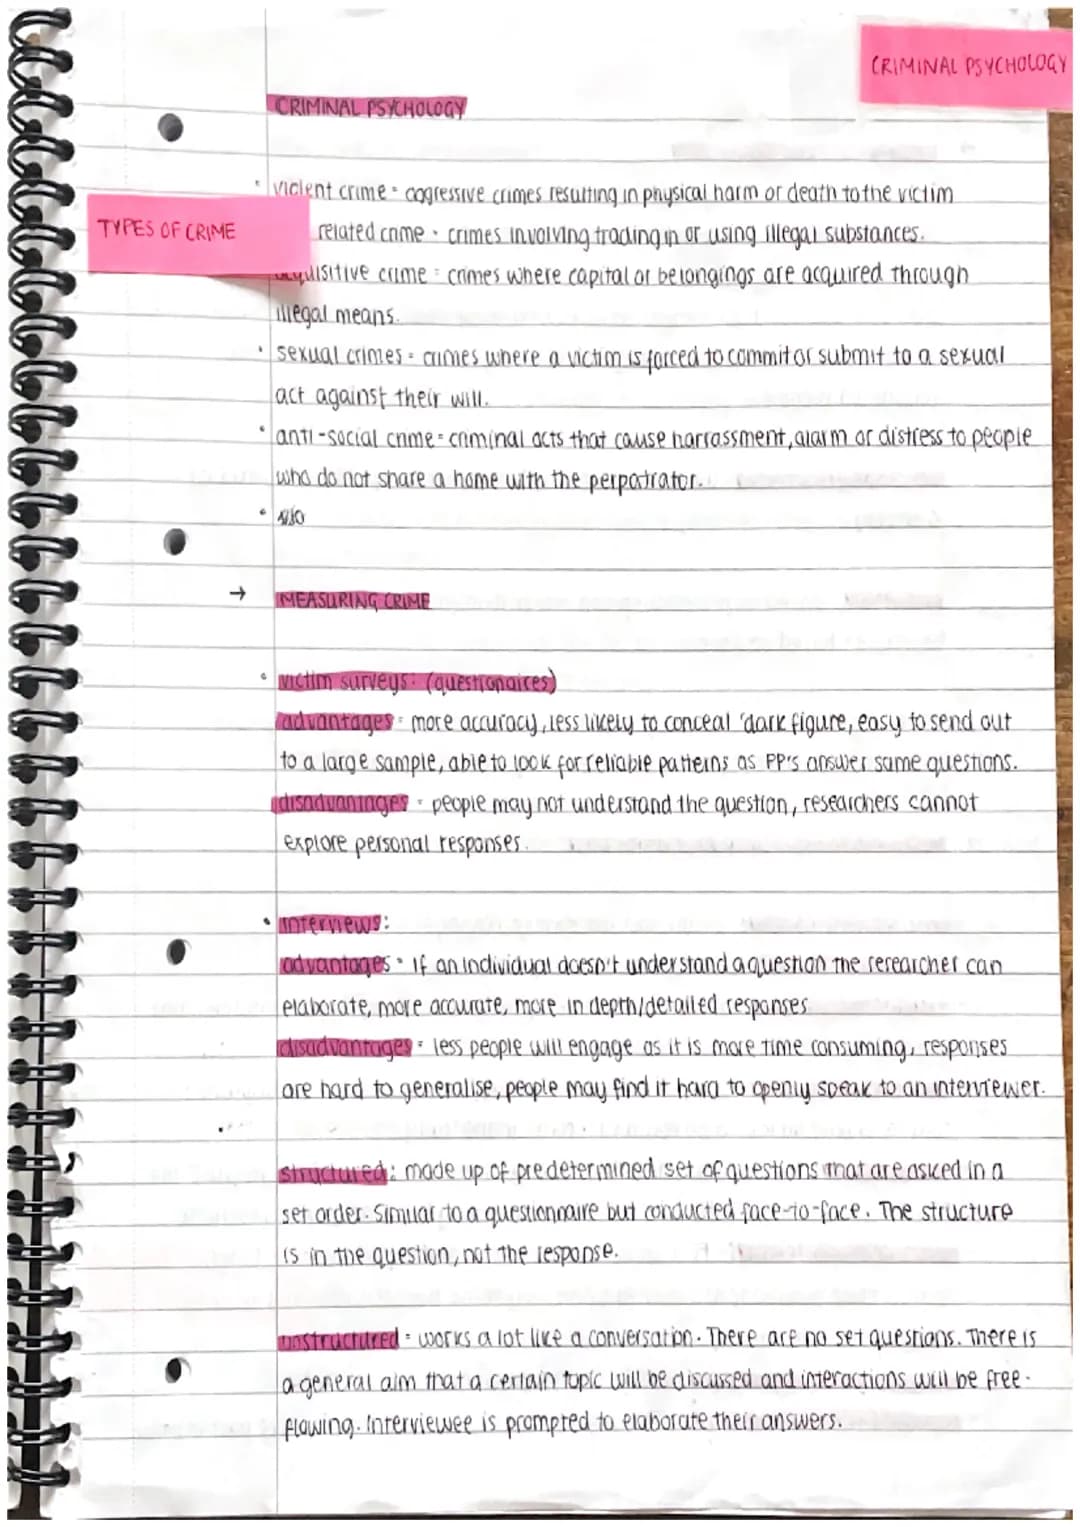 CRIMINAL PSYCHOLOGY
CRIMINAL PSYCHOLOGY
• violent crime = aggressive crimes resulting in physical harm or death to the victim
TYPES OF CRIME
related crime = crimes involving trading in or using illegal substances.
acquisitive crime = crimes where capital or belongings are acquired through
illegal means.
• sexual crimes = crimes where a victim is forced to commit or submit to a sexual
act against their will.
• anti-social crime = criminal acts that cause harrassment, alarm or distress to people
who do not share a home with the perpatrator.
•
→ MEASURING CRIME
• victim surveys: (questionaires)
advantages = more accuracy, less likely to conceal 'dark figure, easy to send out
to a large sample, able to look for reliable patterns as PP's answer same questions.
disadvantages = people may not understand the question, researchers cannot
explore personal responses.
• interviews:
advantages = if an individual doesn't understand a question the researcher can
elaborate, more accurate, more in depth/detailed responses
disadvantages = less people will engage as it is more time consuming, responses
are hard to generalise, people may find it hard to openly speak to an interviewer.
structured: made up of predetermined set of questions that are asked in a
set order. Similar to a questionnaire but conducted face-to-face. The structure
is in the question, not the response.
unstructured = works a lot like a conversation. There are no set questions. There is
a general aim that a certain topic will be discussed and interactions will be free-
flowing. Interviewee is prompted to elaborate their answers.